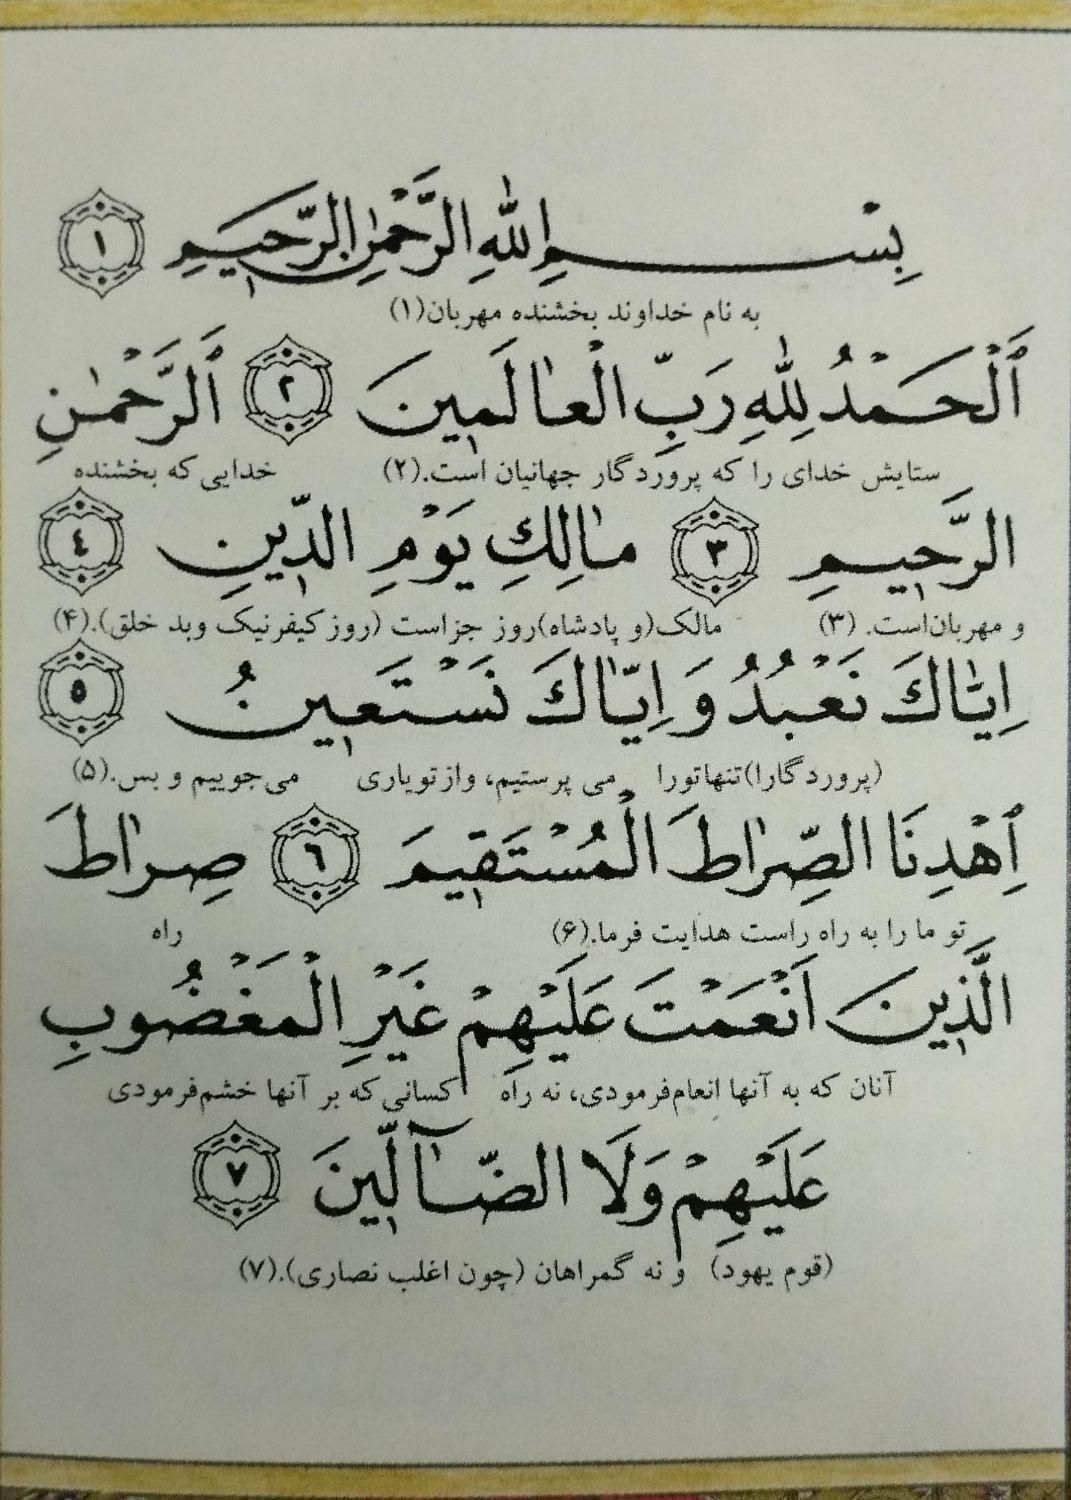 بِسْمِ اللّٰهِ الرَّحْمٰنِ الرَّحٖيمِ ١
به نام خداوند بخشنده مهربان(۱)
اَلْحَمْدُ لِلّٰهِ رَبِّ الْعٰالَمٖينَ ٢ اَلرَّحْمٰنِ
ستایش خدای را که پروردگار جهانیان است.(۲) خدایی که بخشنده
الرَّحٖيمِ ٣ مٰالِكِ يَوْمِ الدّٖينِ ٤
و مهربان‌است. (۳) مالک(و پادشاه)روز جزاست (روزکیفرنیک وبد خلق).(۴)
اِيّٰاكَ نَعْبُدُ وَ اِيّٰاكَ نَسْتَعٖينُ ٥
(پروردگارا)تنهاتورا می پرستیم، وازتویاری می‌جوییم و بس.(۵)
اِهْدِنَا الصِّرٰاطَ الْمُسْتَقٖيمَ ٦ صِرٰاطَ
تو ما را به راه راست هدایت فرما.(۶) راه
الَّذٖينَ اَنْعَمْتَ عَلَيْهِمْ غَيْرِ الْمَغْضُوبِ
آنان که به آنها انعام‌فرمودی، نه راه کسانی‌که بر آنها خشم‌فرمودی
عَلَيْهِمْ وَلَا الضّٰٓالّٖينَ ٧
(قوم یهود) و نه گمراهان (چون اغلب نصاری).(۷)